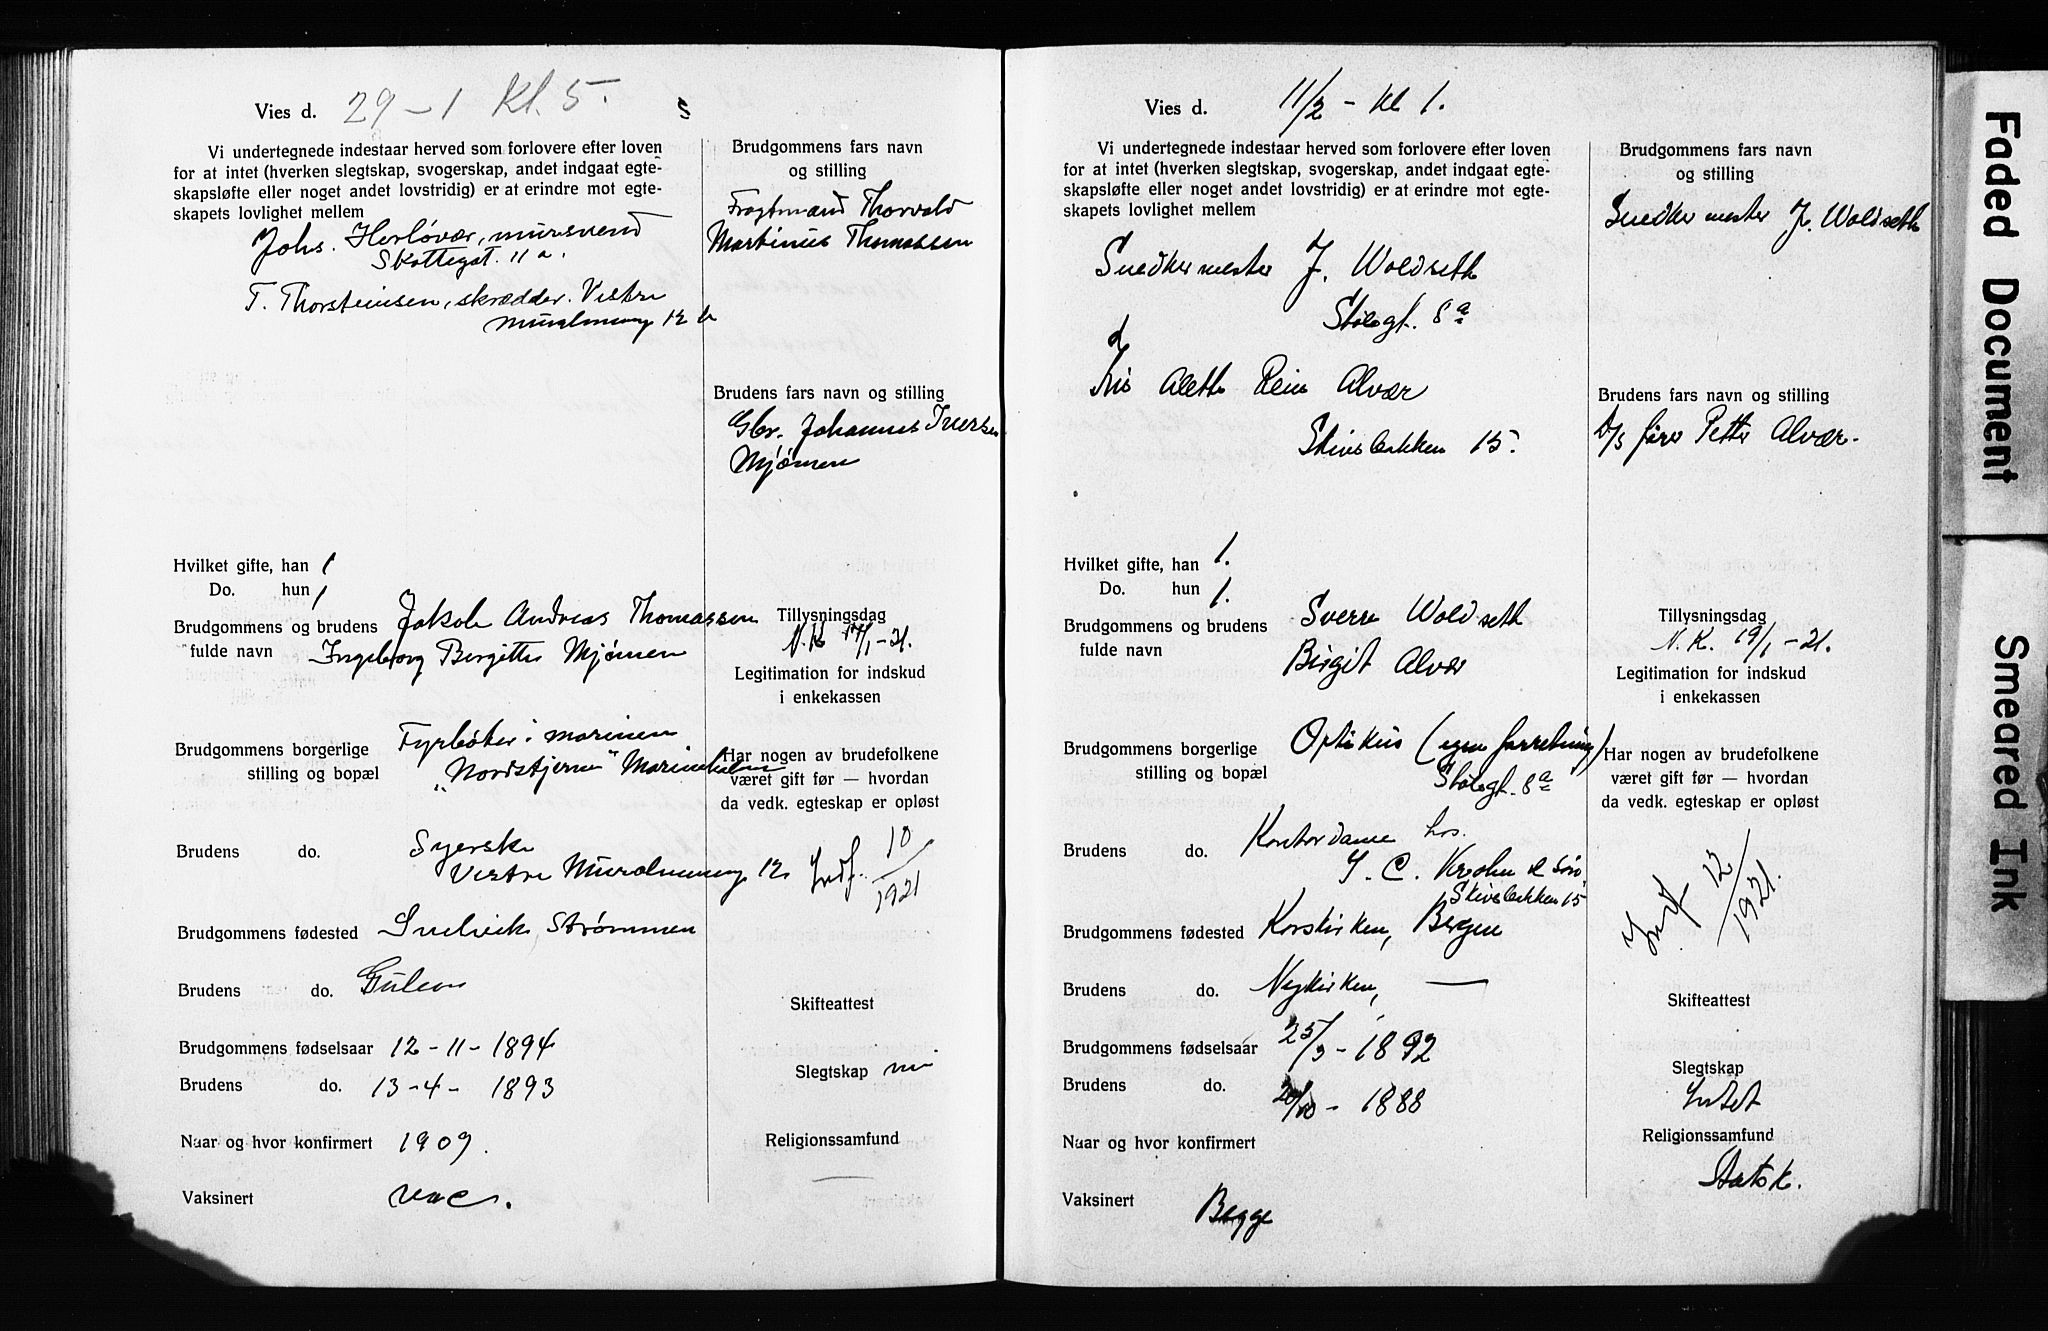 Vies d. 29-1 Kl. 5.
Vi undertegnede indestaar herved som forlovere efter loven
for at intet (hverken slegtskap, svogerskap, andet indgaat egte-
skapsløfte eller noget andet lovstridig) er at erindre mot egte-
skapets lovlighet mellem
Johs. Herløvær, mursvend
Skottegat. 11 a.
T. Thorsteinsen, skrædder. Vestre
Muralmenng 12 b
Brudgommens fars navn
og stilling
Fragtmand Thorvald
Martinus Thomassen
Brudens fars navn og stilling
Gbr. Johannes Iversen
Mjømen
Hvilket gifte, han 1
Do. hun 1
Brudgommens og brudens
fulde navn
Jakob Andreas Thomassen
Ingeborg Bergitte Mjømen
Tillysningsdag
N.K. 17/1-21.
Legitimation for indskud
i enkekassen
Brudgommens borgerlige
stilling og bopæl
Fyrbøter i marinen
"Nordstjernen" Marineholmen
Har nogen av brudefolkene
været gift før — hvordan
da vedk. egteskap er opløst
Brudens do. Syerske
Vestre Muralmenng 12
Indf. 10/1921
Brudgommens fødested Indrevik, Strømmen
Brudens do. Gulen
Skifteattest
Brudgommens fødselsaar 12-11-1894
Brudens do. 13-4-1893
Slegtskap nei
Naar og hvor konfirmert 1909.
Religionssamfund —
Vaksinert vac.
Vies d. 11/2 - kl 1.
Vi undertegnede indestaar herved som forlovere efter loven
for at intet (hverken slegtskap, svogerskap, andet indgaat egte-
skapsløfte eller noget andet lovstridig) er at erindre mot egte-
skapets lovlighet mellem
Snedkermester J. Woldseth
Stølegt. 8a
Alette Rein Alvær
Skivebakken 15.
Brudgommens fars navn
og stilling
Snedkermester J. Woldseth
Brudens fars navn og stilling
D/s fører Petter Alvær.
Hvilket gifte, han 1.
Do. hun 1.
Brudgommens og brudens
fulde navn
Sverre Woldseth
Birgit Alvær
Tillysningsdag
N.K. 19/1-21.
Legitimation for indskud
i enkekassen
Brudgommens borgerlige
stilling og bopæl
Optikus (egen forretning)
Stølegt. 8a
Har nogen av brudefolkene
været gift før — hvordan
da vedk. egteskap er opløst
Brudens do. Kontordame hos.
J. C. Krohn & Søn,
Skivebakken 15
Indf 12/1921.
Brudgommens fødested Korskirken, Bergen
Brudens do. Nykirken, —
Skifteattest
Brudgommens fødselsaar 25/9-1892
Brudens do. 20/10-1888
Slegtskap
Intet
Naar og hvor konfirmert
Religionssamfund
Statsk.
Vaksinert Begge
Faded Document
Smeared Ink